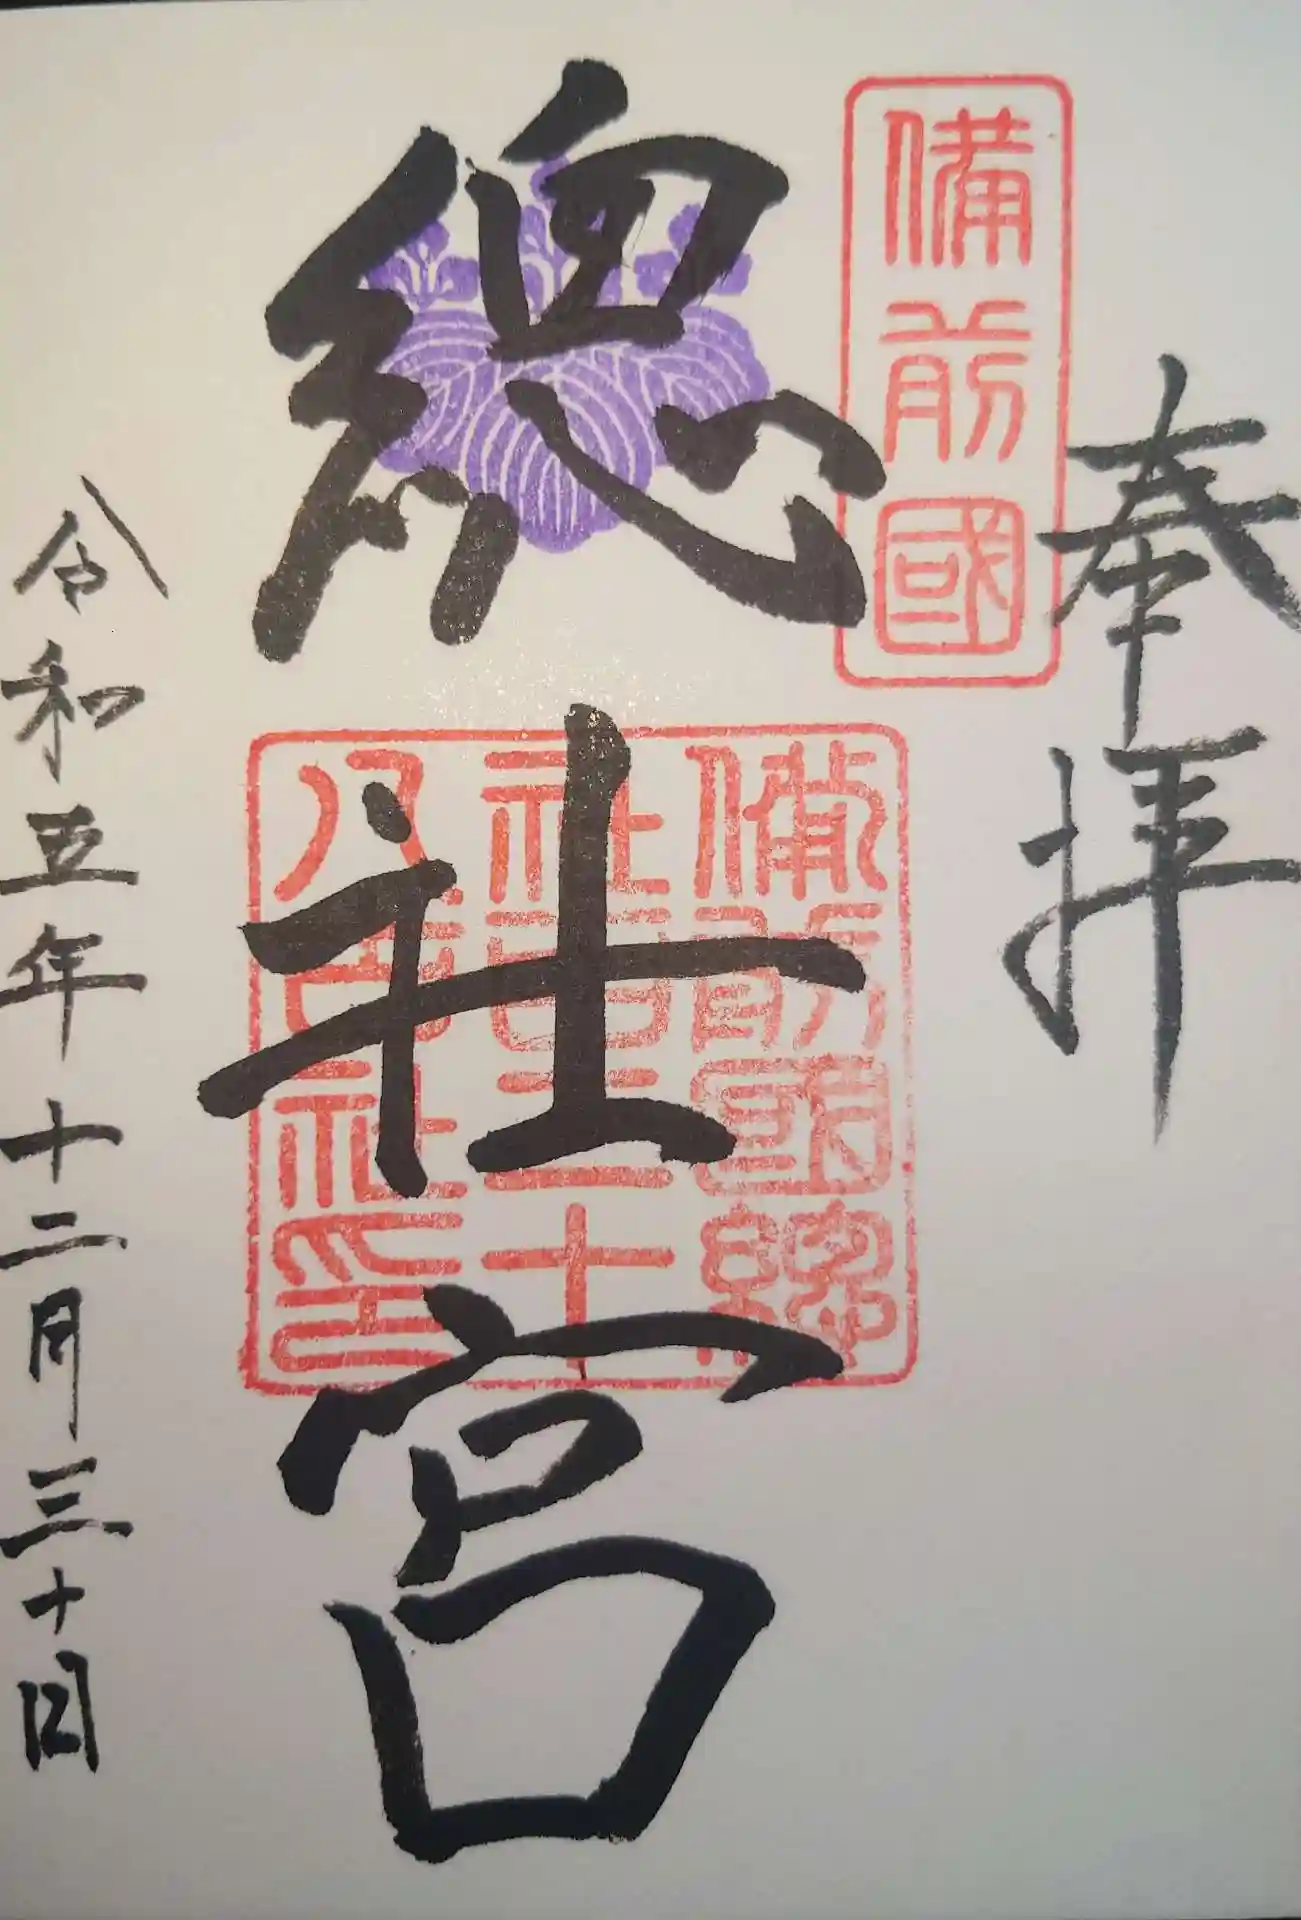 奉拝
備前國
總社宮
備前國總
社百二十
八座社印
令和五年十二月三十日